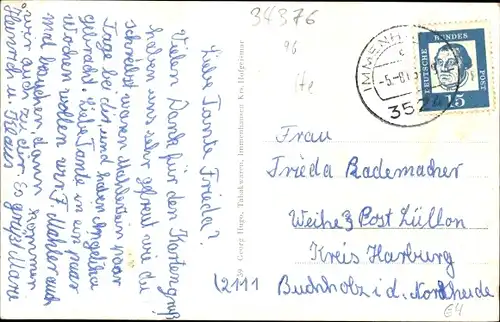 34376
96
Ite
IMMENH
-5.-8.6
3524
DEUTSCHE BUNDESPOST
15
Liebe Tante Frieda!
Vielen Dank für den Kartengruß
haben uns sehr gefreut wie du
schreibst waren Mahlers ein paar
Tage bei dir und haben Angelika
gebracht. Liebe Tante in ein paar
Wochen wollen wir F. Mahler auch
mal besuchen dann kommen
wir auch zu dir. Es grüßt
Heinrich u. Klaus
Georg Hugo, Tabakwaren, Immenhausen Krs. Hofgeismar
Frau
Frieda Rademacher
Weihe 3 Post Lüllon
Kreis Harburg
(2111 Buchholz i. d. Nordheide
€4